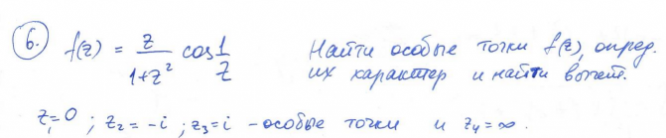 6. f(z) = z/(1+z²) cos 1/z Найти особые точки f(z), опред.
их характер и найти вычет.
z₁=0 ; z₂=-i ; z₃=i - особые точки и z₄=∞.